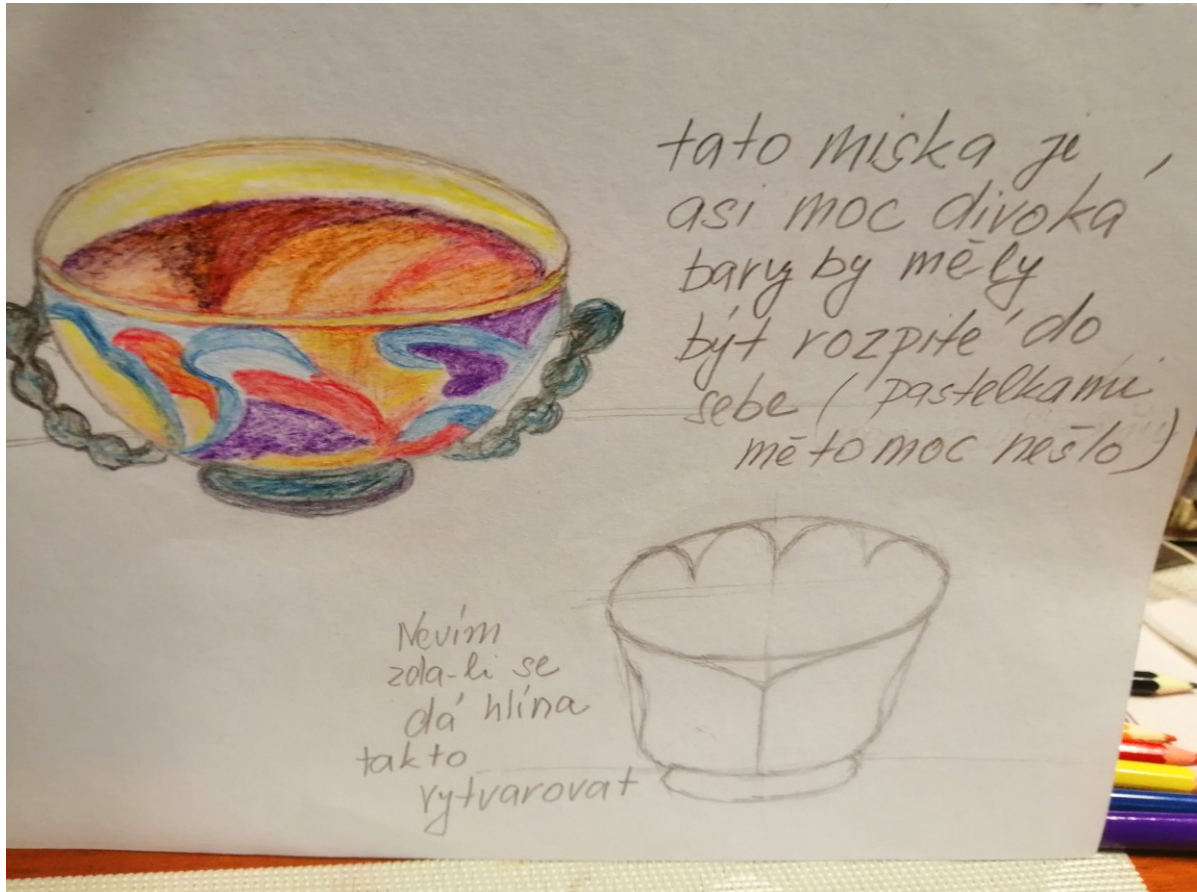 tato miska je
asi moc divoká
barvy by měly
být rozpité do
sebe ( pastelkami
mě to moc nešlo )
Nevím
zda-li se
dá hlína
takto
vytvarovat